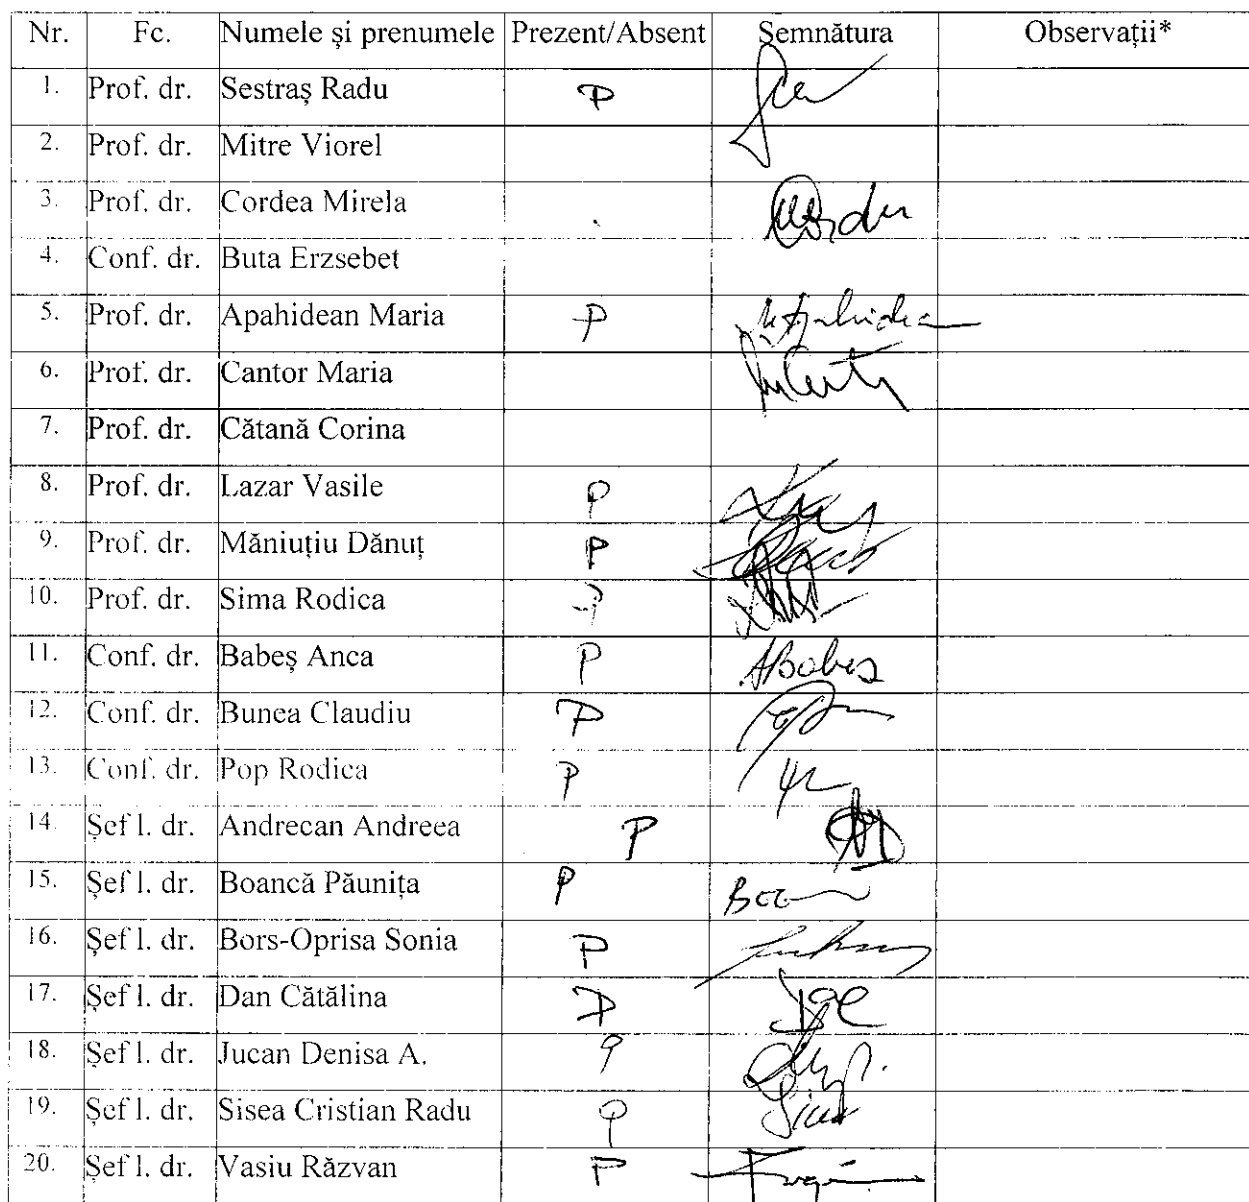 Nr. Fc. Numele și prenumele Prezent/Absent Semnătura Observații*
1. Prof. dr. Sestraș Radu P
2. Prof. dr. Mitre Viorel
3. Prof. dr. Cordea Mirela
4. Conf. dr. Buta Erzsebet
5. Prof. dr. Apahidean Maria P
6. Prof. dr. Cantor Maria
7. Prof. dr. Cătană Corina
8. Prof. dr. Lazar Vasile P
9. Prof. dr. Măniuțiu Dănuț P
10. Prof. dr. Sima Rodica P
11. Conf. dr. Babeș Anca P ABabes
12. Conf. dr. Bunea Claudiu P
13. Conf. dr. Pop Rodica P
14. Șef l. dr. Andrecan Andreea P
15. Șef l. dr. Boancă Păunița P
16. Șef l. dr. Bors-Oprisa Sonia P
17. Șef l. dr. Dan Cătălina P
18. Șef l. dr. Jucan Denisa A. P
19. Șef l. dr. Sisea Cristian Radu P
20. Șef l. dr. Vasiu Răzvan P